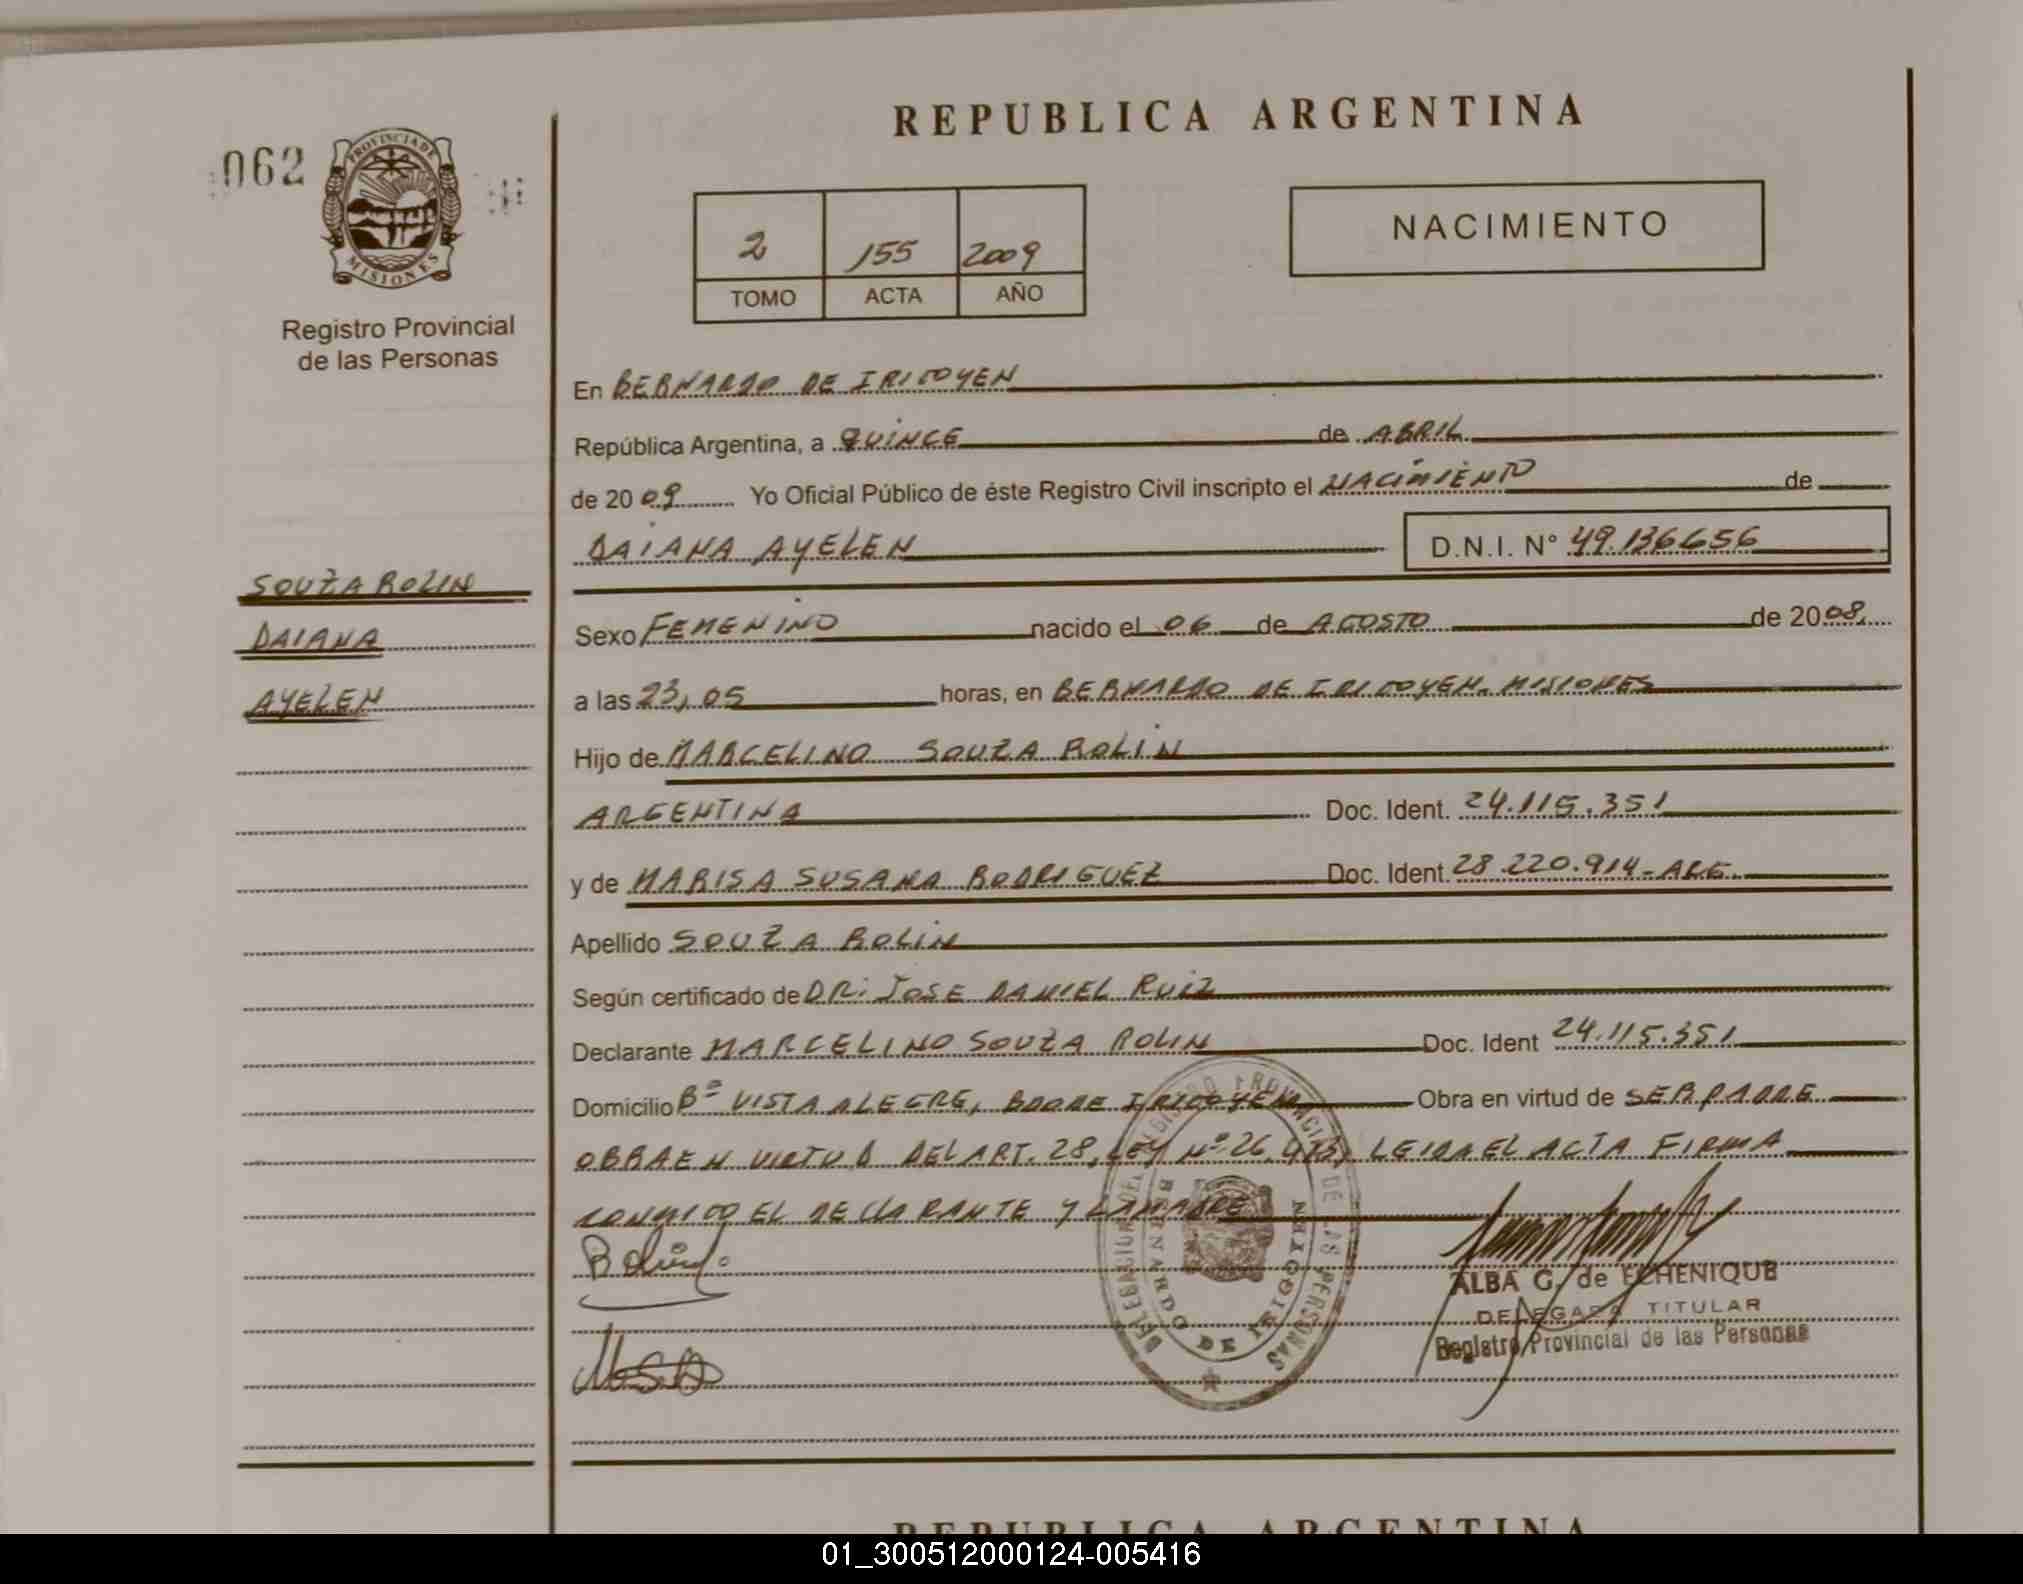 REPUBLICA ARGENTINA
062
PROVINCIA DE
MISIONES
Registro Provincial
de las Personas
2 155 2009
TOMO ACTA AÑO
NACIMIENTO
En BERNARDO DE IRIGOYEN
República Argentina, a QUINCE de ABRIL
de 2009 Yo Oficial Público de éste Registro Civil inscripto el NACIMIENTO de
DAIANA AYELEN D.N.I. N° 49.136656
SOUZA ROLIN
DAIANA
AYELEN
Sexo FEMENINO nacido el 06 de AGOSTO de 2008,
a las 23,05 horas, en BERNARDO DE IRIGOYEN. MISIONES
Hijo de MARCELINO SOUZA ROLIN
ARGENTINA Doc. Ident. 24.115.351
y de MARISA SUSANA RODRIGUEZ Doc. Ident. 28.220.914-ARG.
Apellido SOUZA ROLIN
Según certificado de DR: JOSE DANIEL RUIZ
Declarante MARCELINO SOUZA ROLIN Doc. Ident 24.115.351
Domicilio Bº VISTA ALEGRE, BDODE IRIGOYEN Obra en virtud de SER PADRE
OBRA EN VIRTUD DEL ART. 28, LEY Nº 26.413, LEIDA EL ACTA FIRMA
CONMIGO EL DECLARANTE Y LA MADRE
DELEGACION DEL REGISTRO PROVINCIAL DE LAS PERSONAS
BERNARDO DE IRIGOYEN
ALBA G. de ECHENIQUE
DELEGADA TITULAR
Registro Provincial de las Personas
REPUBLICA ARGENTINA
01_300512000124-005416